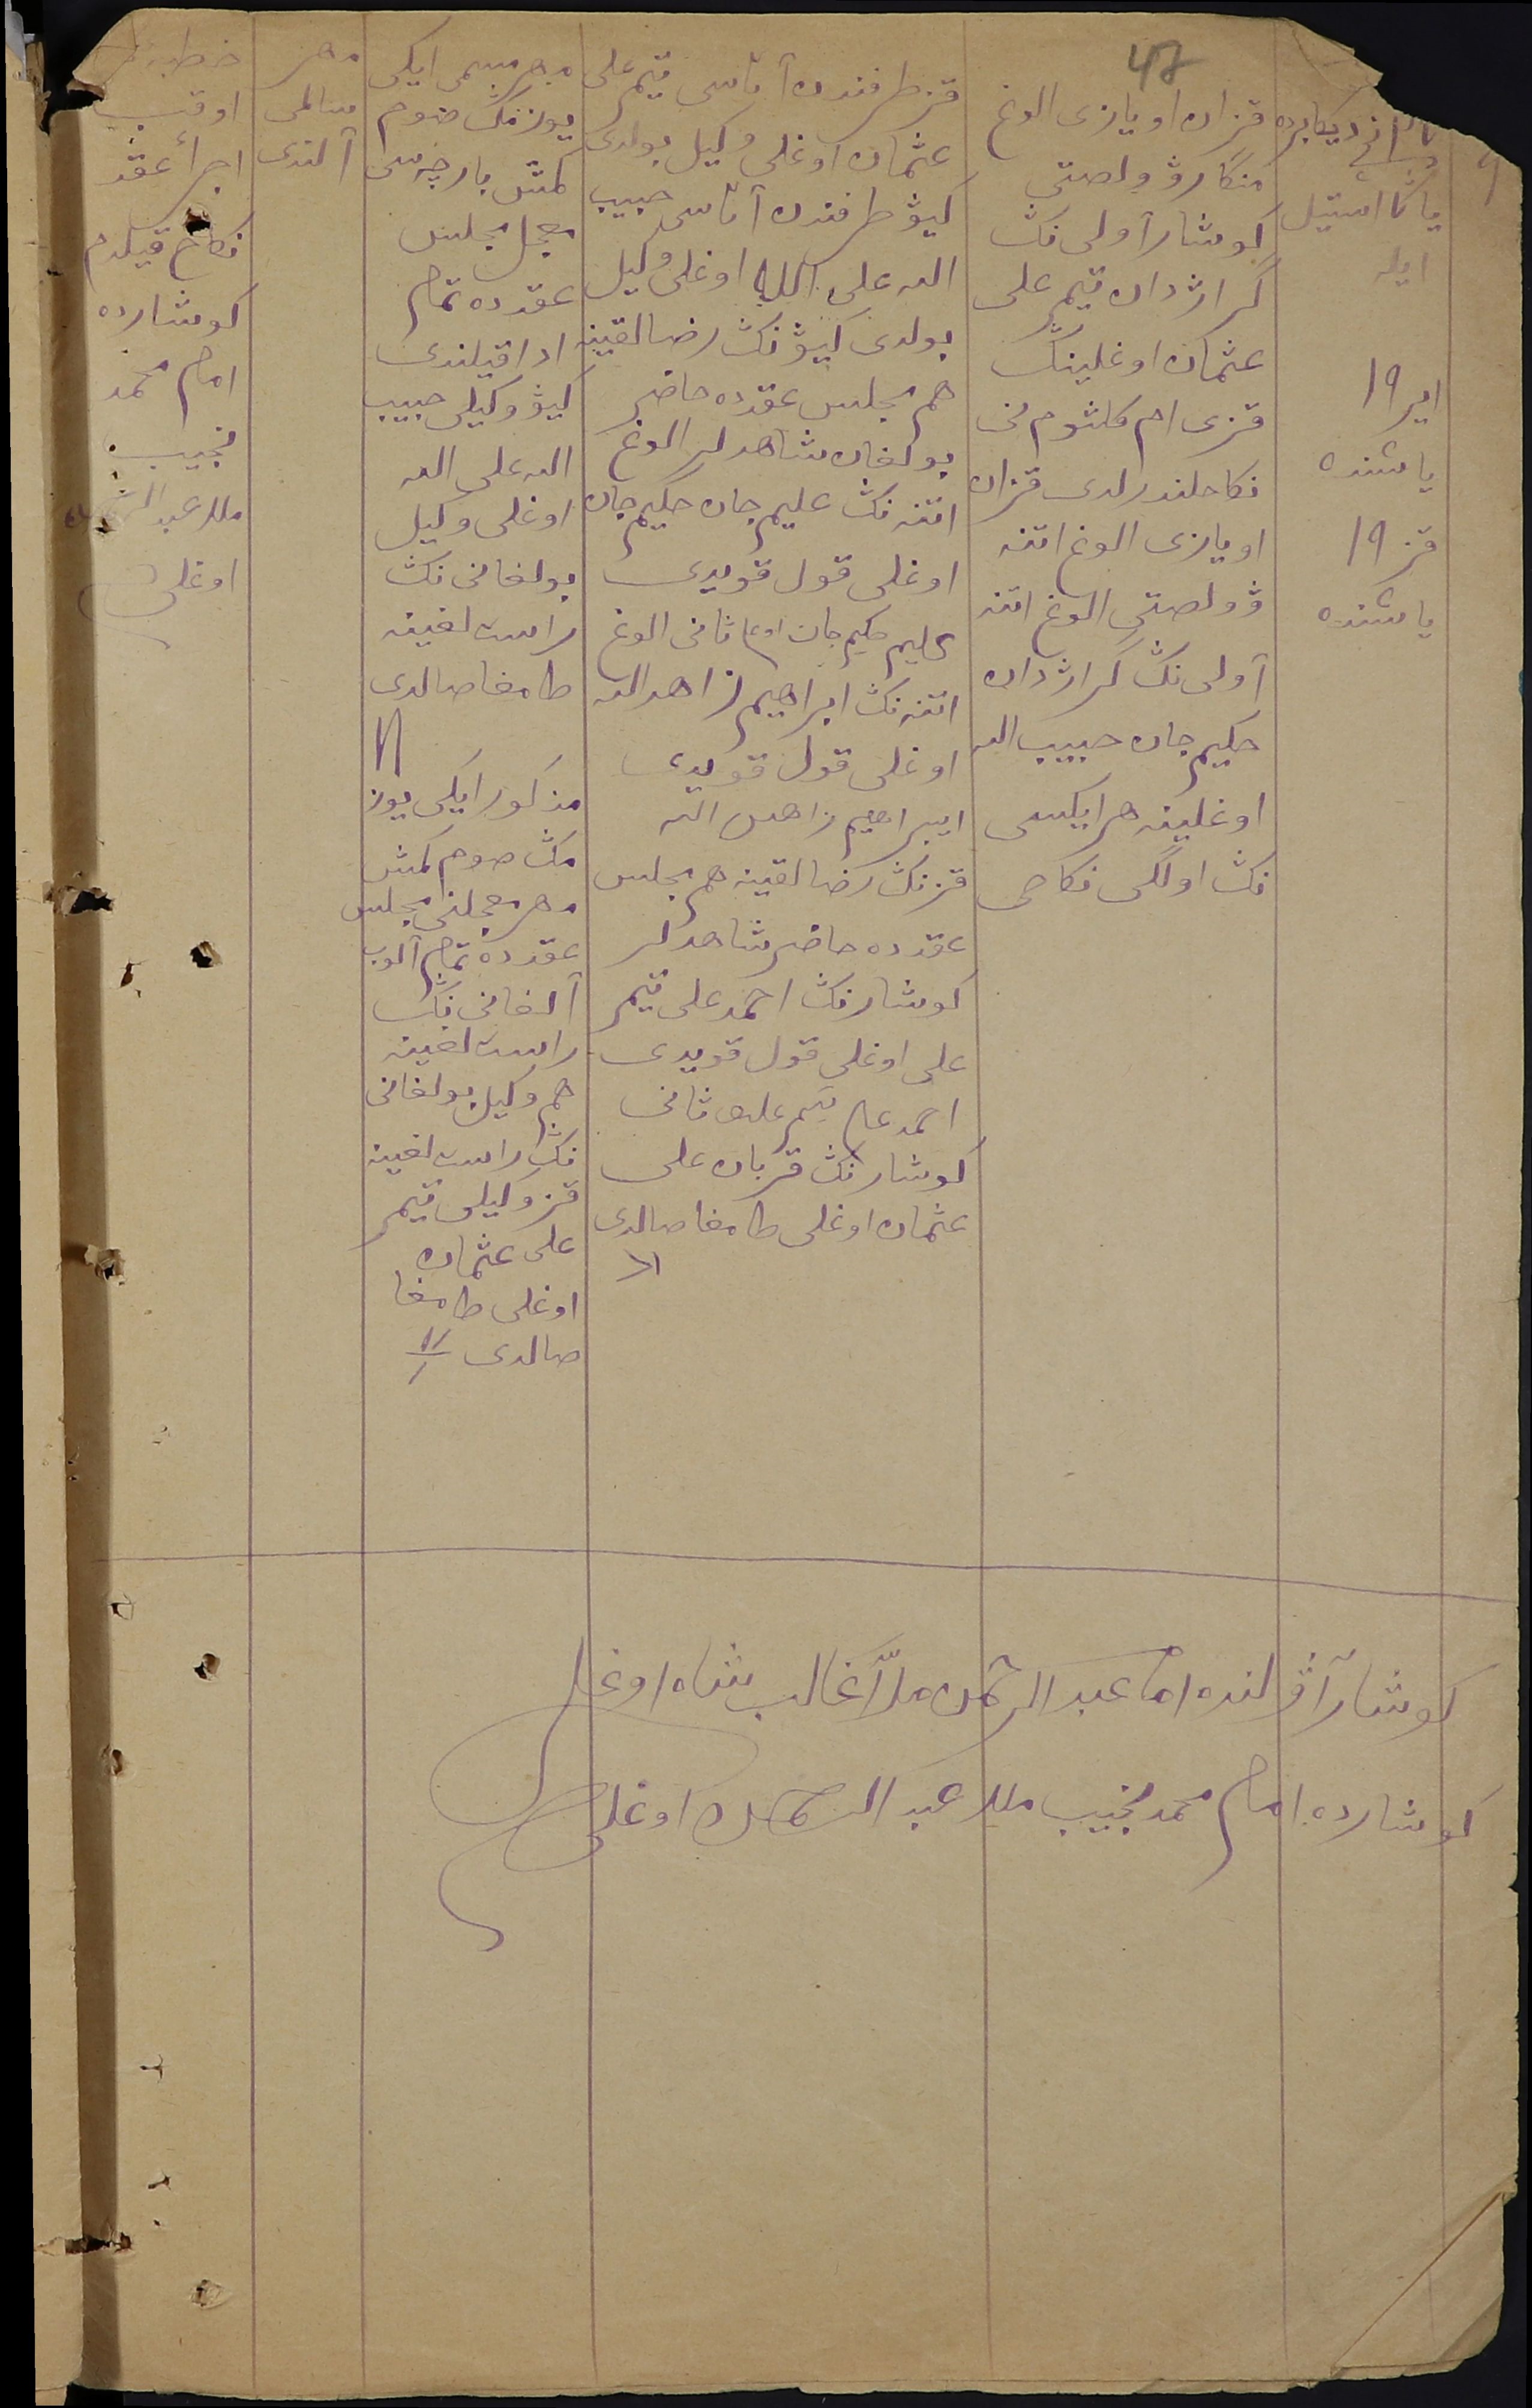 47
٩
دیکابرده
یاڭا استیل
ایله
ایر ١٩
یاشنده
قز ١٩
یاشنده
قزان اویازی الوغ
منكارۋ ولصتی
كوشار آولی نڭ
گراژدان قیم علی
عثمان اوغلینڭ
قزی ام كلثوم نی
نكاحلندرلدی قزان
اویازی الوغ اتنه
ۋولصتی الوغ اتنه
آولی نڭ گراژدان
حكیم جان حبیب الله
اوغلینه هر ایكسی
نڭ اولگی نكاحی
قز طرفندن آتاسی قیم علی
عثمان اوغلی وكیل بولدی
كیۋ طرفندن آتاسی حبیب
الله علی الله اوغلی وكیل
بولدی كیۋ نڭ رضالقینه
هم مجلس عقدده حاضر
بولغان شاهدلر الوغ
اتنه نڭ علیم جان حكیم جان
اوغلی قول قویدی
علیم حكیم جان اوغلی ثانی الوغ
اتنه نڭ ابراهیم زاهدالله
اوغلی قول قویدی
ایبراهیم زاهدالله
قزنڭ رضالقینه هم مجلس
عقدده حاضر شاهدلر
كوشارنڭ احمد علی قیم
علی اوغلی قول قویدی
احمد علی قیم علی ثانی
كوشارنڭ قربان علی
عثمان اوغلی طامغا صالدی
مهر مسمی ایكی
یوز مڭ صوم
كمش بارچه سی
معجل مجلس
عقدده تمام
ادا قیلندی
كیۋ وكیلی حبیب
الله علی الله
اوغلی وكیل
بولغانی نڭ
راست لغینه
طامغا صالدی
مذكور ایكی یوز
مڭ صوم كمش
مهر معجلنی مجلس
عقدده تمام آلوب
آلغانی نڭ
راست لغینه
هم وكیل بولغانی
نڭ راست لغینه
قز وكیلی قیم
علی عثمان
اوغلی طامغا
صالدی
مهر
سالمی
آلندی
خطبه
اوقب
اجرأ عقد
نكاح قیلدم
كوشارده
امام محمد
نجیب
ملا عبدالرحمن
اوغلی
كوشار آۋلنده امام عبدالرحمن ملّا غالب شاه اوغلی
كوشارده امام محمد نجیب ملا عبدالرحمن اوغلی